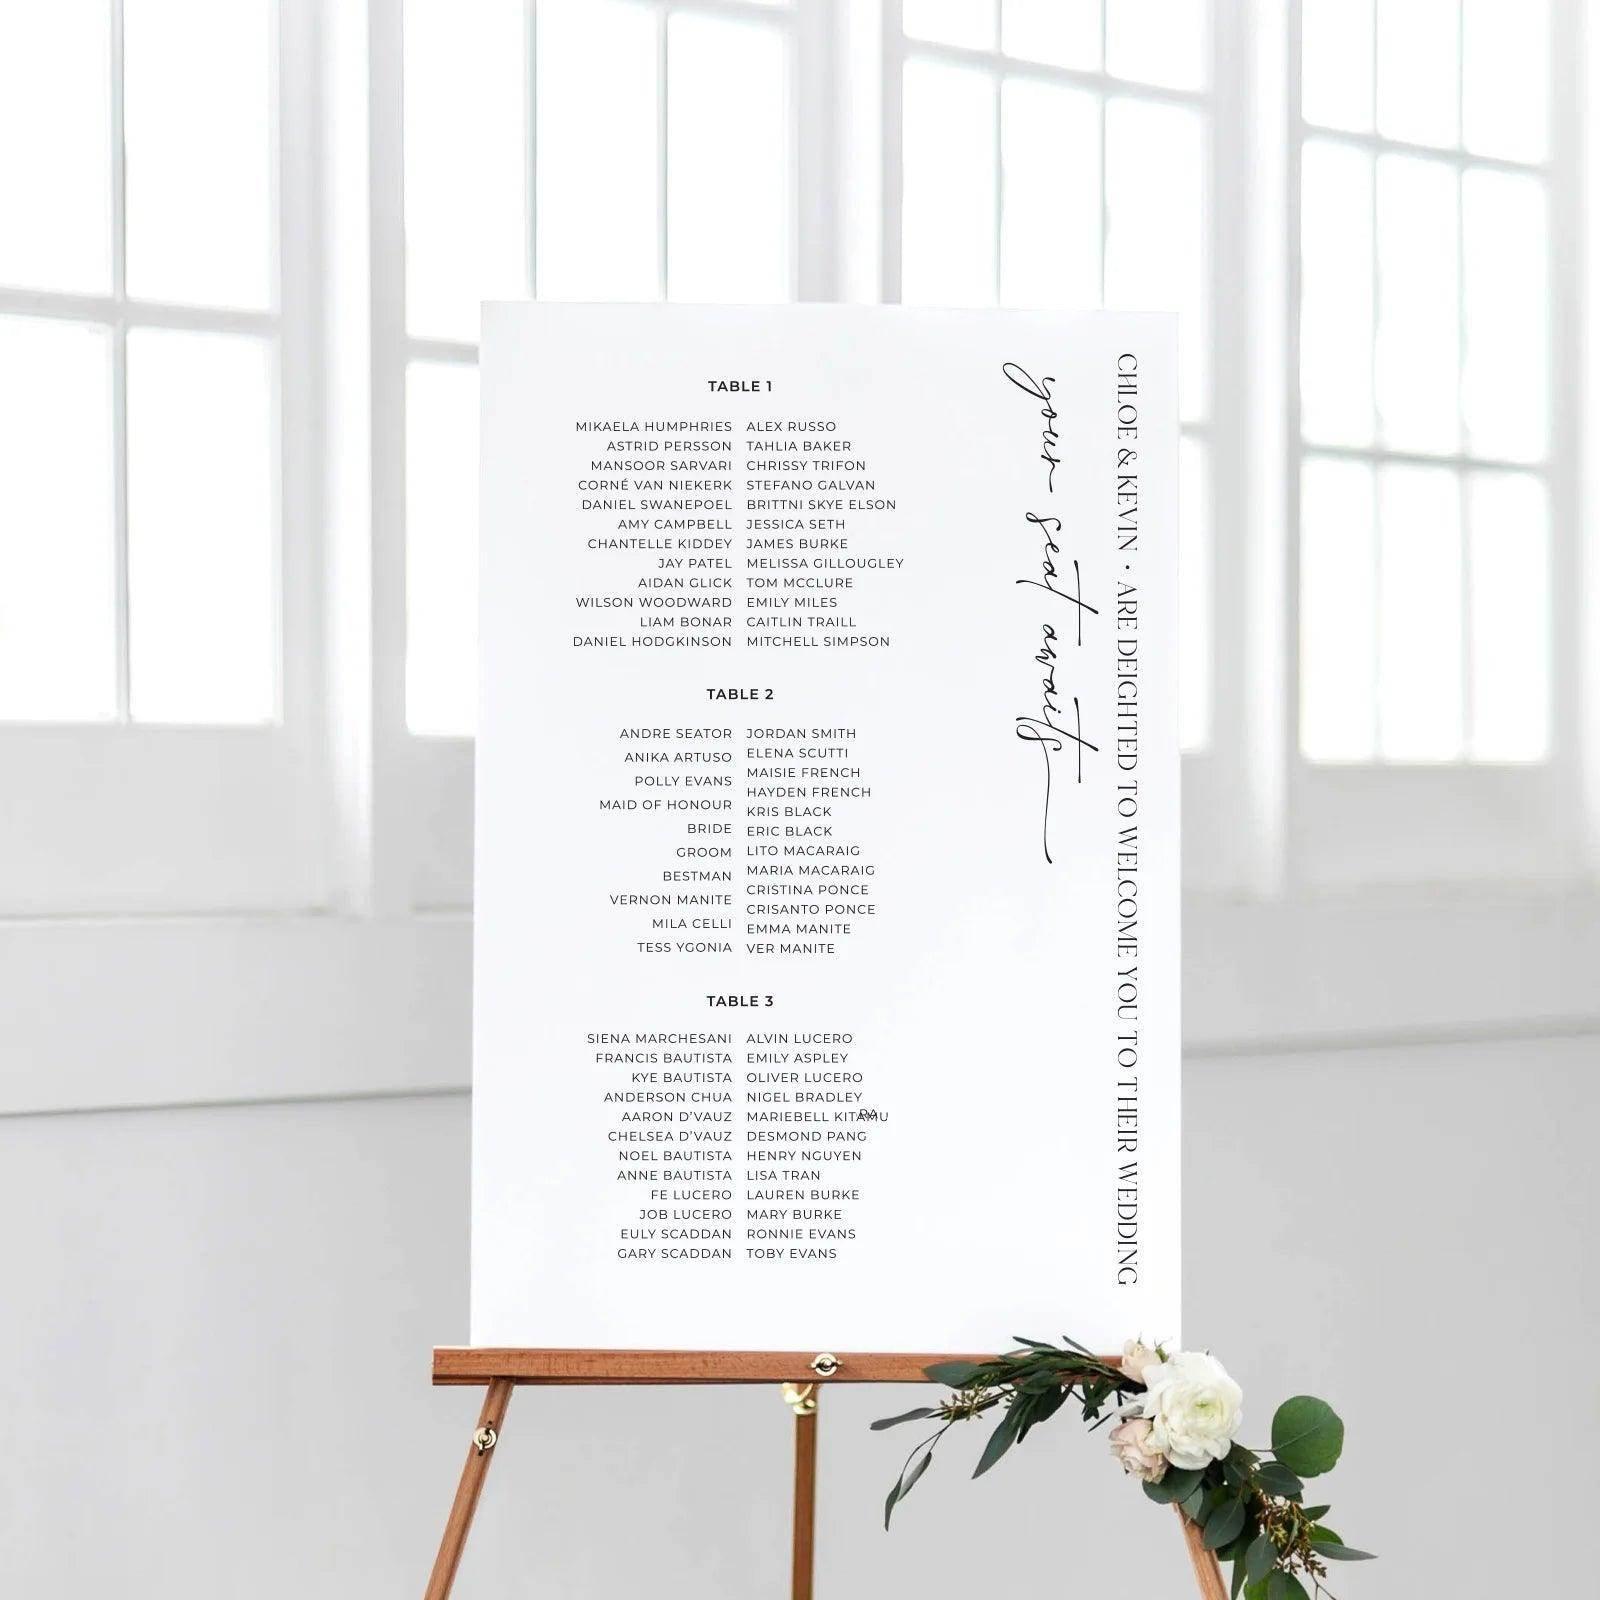 TABLE 1
MIKAELA HUMPHRIES ALEX RUSSO
ASTRID PERSSON TAHLIA BAKER
MANSOOR SARVARI CHRISSY TRIFON
CORNÉ VAN NIEKERK STEFANO GALVAN
DANIEL SWANEPOEL BRITTNI SKYE ELSON
AMY CAMPBELL JESSICA SETH
CHANTELLE KIDDEY JAMES BURKE
JAY PATEL MELISSA GILLOUGLEY
AIDAN GLICK TOM MCCLURE
WILSON WOODWARD EMILY MILES
LIAM BONAR CAITLIN TRAILL
DANIEL HODGKINSON MITCHELL SIMPSON
TABLE 2
ANDRE SEATOR
ANIKA ARTUSO
POLLY EVANS
MAID OF HONOUR
BRIDE
GROOM
BESTMAN
VERNON MANITE
MILA CELLI
TESS YGONIA
JORDAN SMITH
ELENA SCUTTI
MAISIE FRENCH
HAYDEN FRENCH
KRIS BLACK
ERIC BLACK
LITO MACARAIG
MARIA MACARAIG
CRISTINA PONCE
CRISANTO PONCE
EMMA MANITE
VER MANITE
TABLE 3
SIENA MARCHESANI ALVIN LUCERO
FRANCIS BAUTISTA EMILY ASPLEY
KYE BAUTISTA OLIVER LUCERO
ANDERSON CHUA NIGEL BRADLEY
AARON D'VAUZ MARIEBELL
CHELSEA D'VAUZ DESMOND PANG
NOEL BAUTISTA HENRY NGUYEN
ANNE BAUTISTA LISA TRAN
FE LUCERO LAUREN BURKE
JOB LUCERO MARY BURKE
EULY SCADDAN RONNIE EVANS
GARY SCADDAN TOBY EVANS
your seat awaits
CHLOE & KEVIN • ARE DEIGHTED TO WELCOME YOU TO THEIR WEDDING